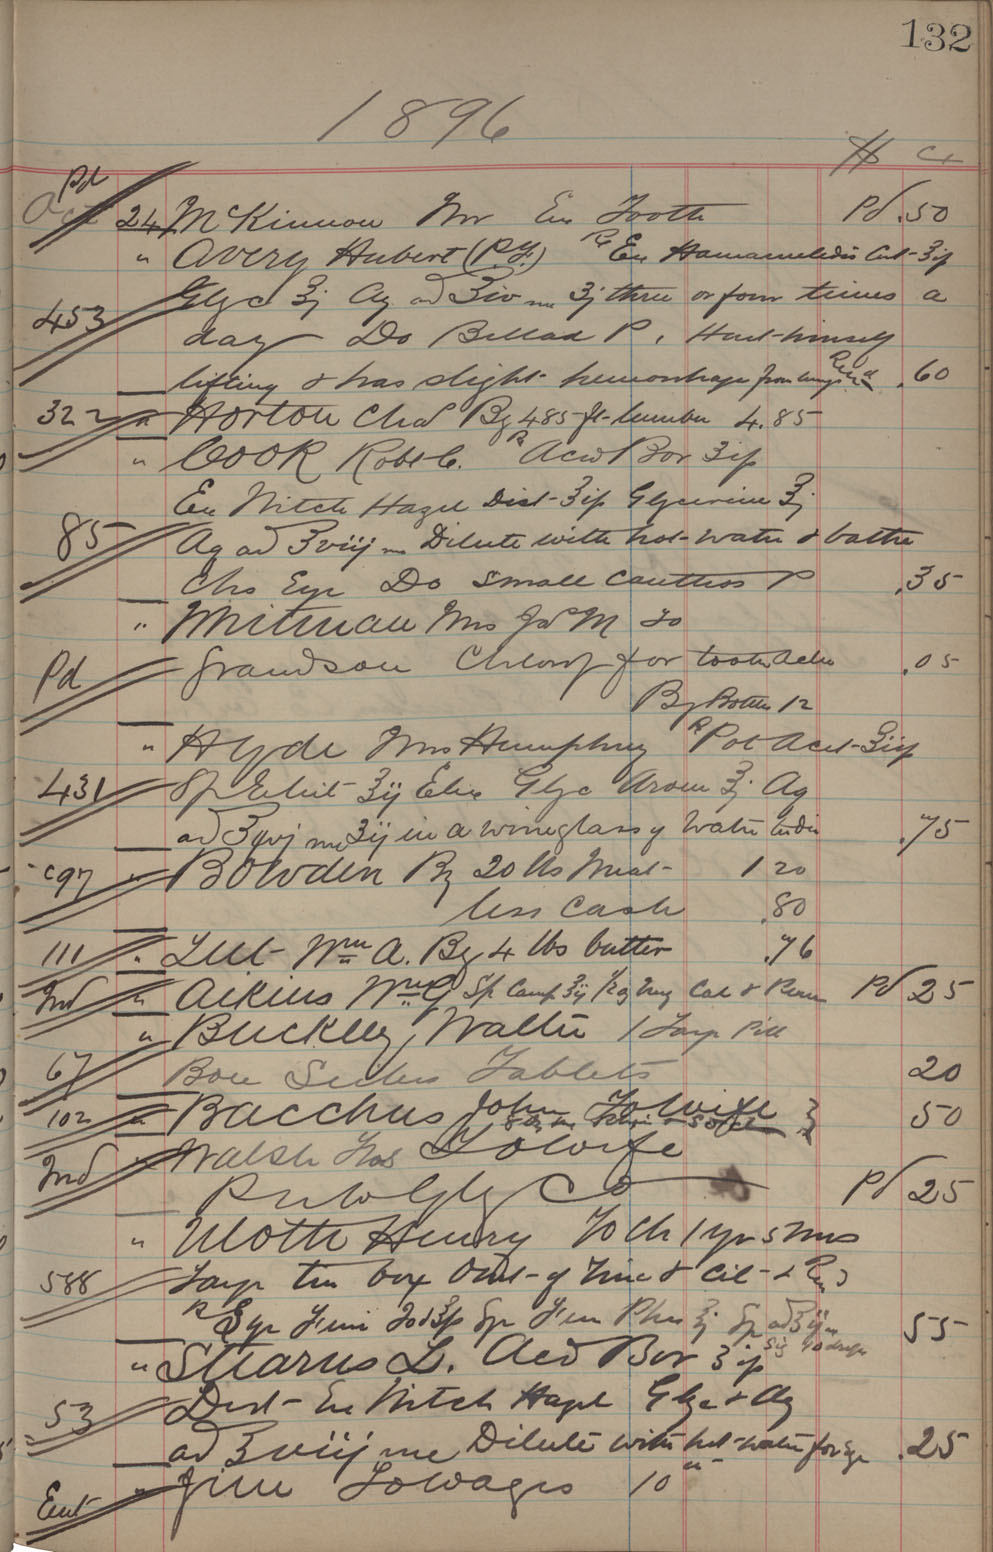 132
1896
$ Ct
Pd
Oct 24 McKinnon Mr Ex Tooth Pd .50
" Avery Hubert (P.F.) Rx Ex Hamamelidis Dist ʒip
Glyc ʒj Aq ad ʒiv m ʒj three or four times a
453
day Do Bellad P. Hurt himself
lifting & has slight hemorrhage from lungs .60
322 " Horton Chas By 485 ft lumber 4.85
" Cook Robt C. Rx Acid Bor ʒip
Ex Witch Hazel Dist ʒip Glycerine ʒj
85 Aq ad ʒviij m Dilute with hot water & bathe
Chs Eye Do Small Cauthos P .35
" Whitman Mrs Jas M to
Pd Grandson Chlorof for toothache .05
By Bottle 12
" Hyde Mrs Humphrey Rx Pot Acet ʒip
431 Sp Nit ʒij Elix Glyc Arom ʒj Aq
ad ʒxvj m ʒij in a wineglass of water .75
c97 " Bowden By 20 lbs Meat 1 20
less Cash .80
111 " Lut Wm A. By 4 lbs butter .76
Ind " Aikins Wm G Sp Camp ʒij Pd 25
" Buckley, Walter 1 Large Pill
67 Box Tablets 20
102 " Bacchus John To Wife 50
Ind " Walsh Thos To Wife
Pd 25
" Mott Henry To Ch 1 yr 5 mos
588 Large tin box Oint of Zinc &
Rx Syr Ferri Iod ʒip Syr Ferri Phos ʒj 55
" Stearns L. Acid Bor ʒip
53 Dist Ex Witch Hazel Glyc & Aq
ad ʒviij m Dilute with hot water for eye .25
Ent " Jim To wages 10